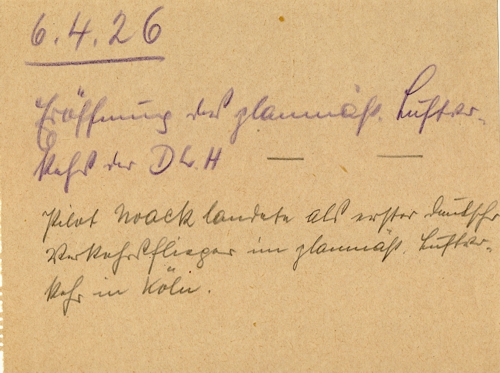 6.4.26
Eröffnung des planmäß. Luftver-
kehrs der D L. H
Pilot Noack landete als erster deutscher
Verkehrsflieger im planmäß. Luftver-
kehr in Köln.